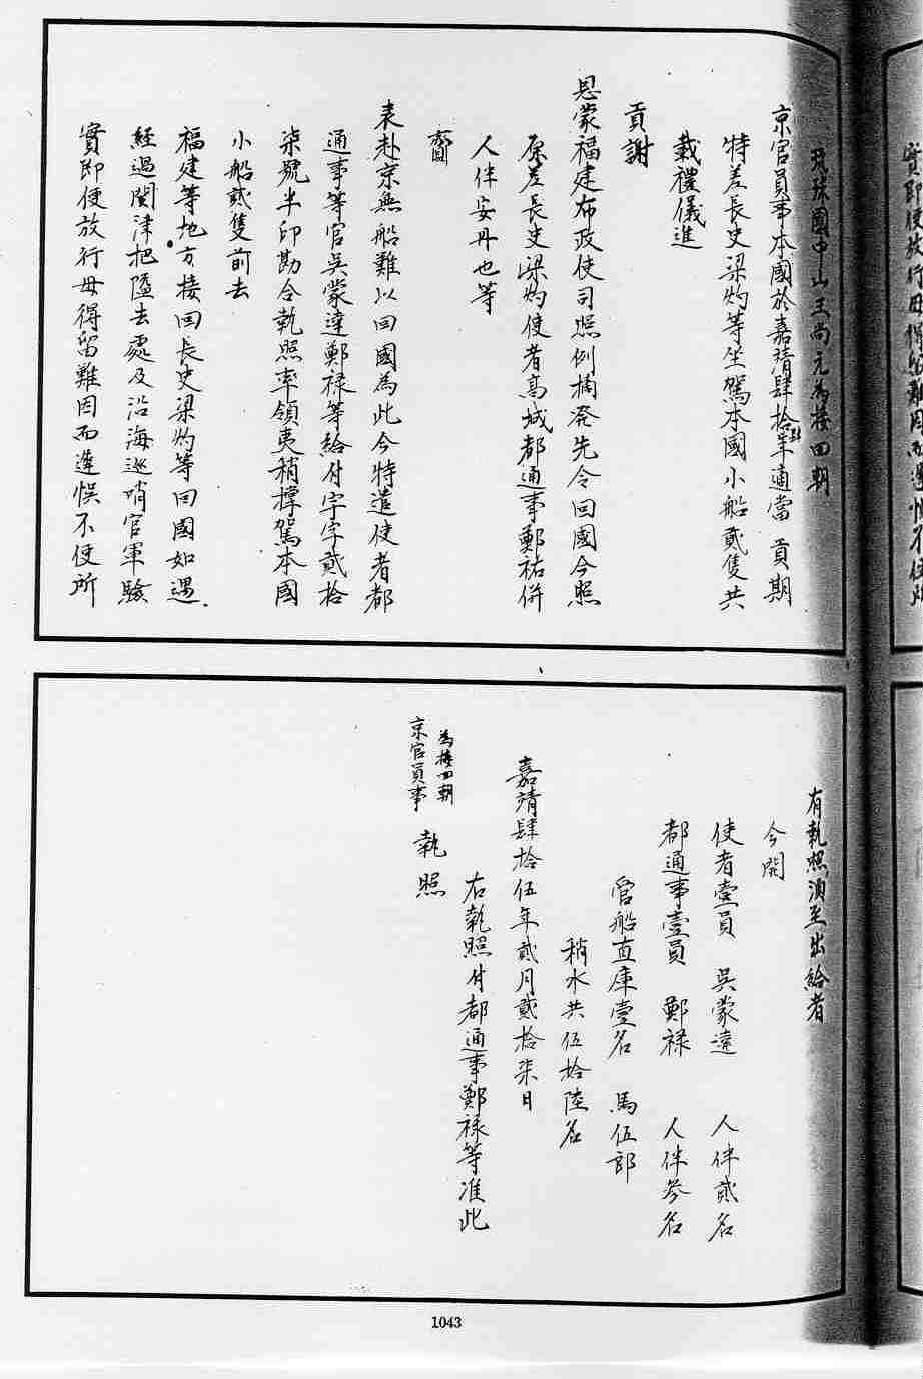 琉球國中山王尚元為接回朝
京官員事本國於嘉靖肆拾年適當 貢期
特差長史梁灼等坐駕本國小船貳隻共
載禮儀進
貢謝
恩蒙福建布政使司照例摘發先令回國今照
原差長史梁灼使者高城都通事鄭祐併
人伴安丹也等
齎
表赴京無船難以回國為此今特遣使者都
通事等官吳蒙達鄭祿等給付字字貳拾
柒號半印勘合執照率領夷稍撐駕本國
小船貳隻前去
福建等地方接回長史梁灼等回國如遇
經過關津把隘去處及沿海巡哨官軍驗
實即便放行毋得留難因而遲悞不便所
有執照須至出給者
今開
使者壹員 吳蒙達 人伴貳名
都通事壹員 鄭祿 人伴參名
管船直庫壹名 馬伍郎
稍水共伍拾陸名
嘉靖肆拾伍年貳月貳拾柒日
右執照付都通事鄭祿等准此
為接回朝
京官員事 執照
1043